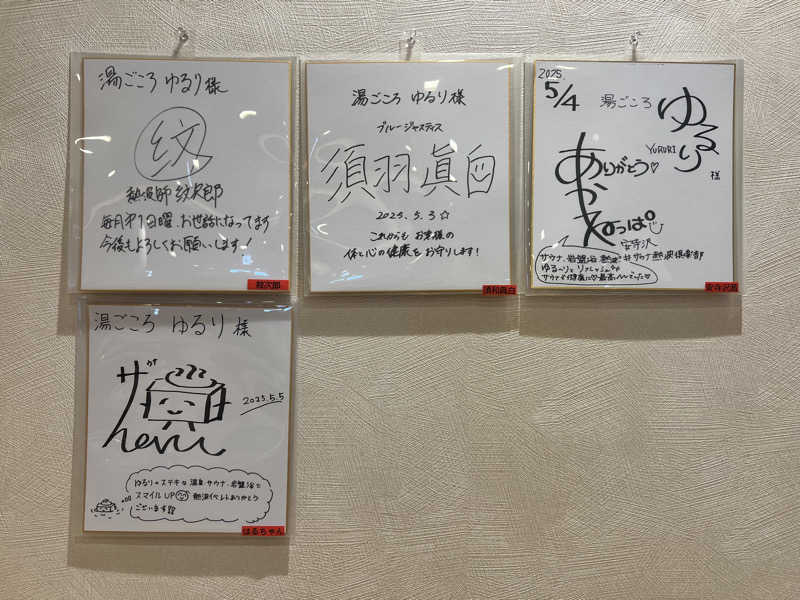 湯ごころ ゆるり様
紋
熱波師 紋次郎
毎月第1日曜、お世話になってます
今後もよろしくお願いします!
紋次郎
湯ごころ ゆるり様
ブルージャスティス
須羽真白
2025.5.3☆
これからも お客様の
体と心の健康をお守りします!
2025.
5/4
湯ごころ
ゆるり
YURURI
様
ありがとう♡
安寺沢
サウナ、岩盤浴、熱波!#サウナ熱波倶楽部
ゆる〜りとリフレッシュ
湯ごころ ゆるり 様
サ
haru
2025.5.5
ゆるりのステキな温泉・サウナ・岩盤浴で
スマイルUP 熱波イベントありがとう
ございます
はるちゃん